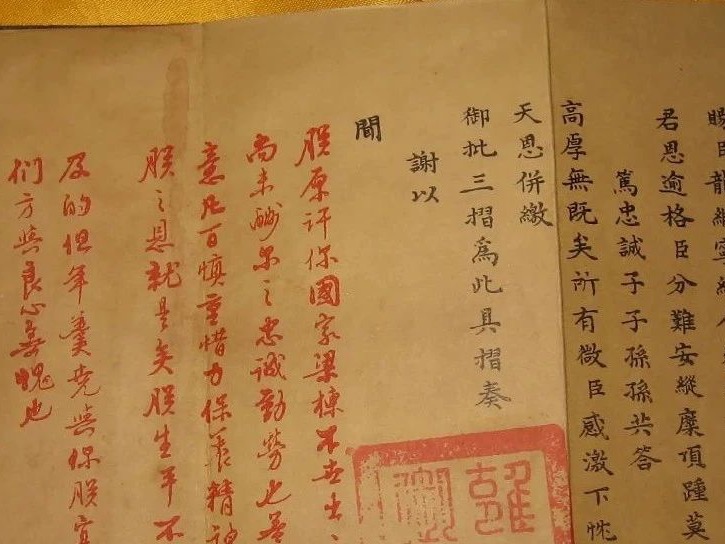 賜臣龍緞
君恩逾格臣分難安縱糜頂踵莫
篤忠誠子子孫孫共答
高厚無既矣所有微臣感激下忱
天恩併繳
御批三摺為此具摺奏
謝以
聞
朕原許你國家梁棟不世出之
尚未酬尔之忠誠勤勞也
意凡百慎重惜力保養精神
朕之恩就是矣朕生平不
及的但年羹堯與你朕實
們方與良心無愧也